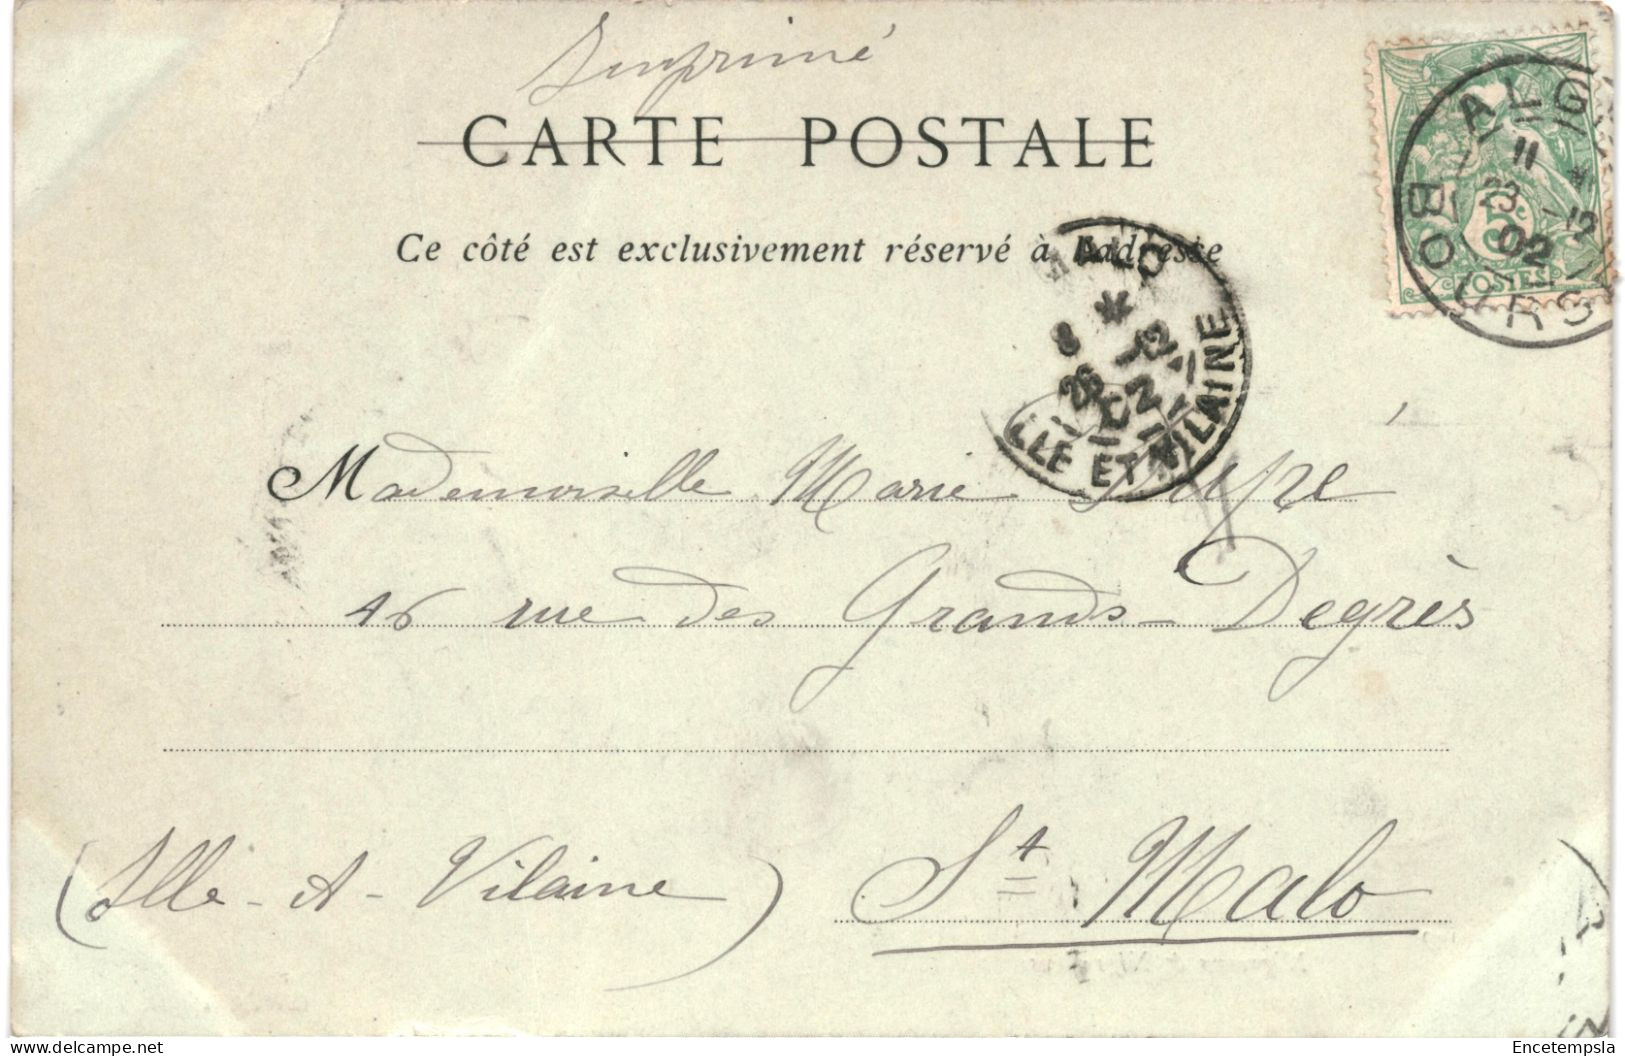 Imprimé
CARTE POSTALE
Ce côté est exclusivement réservé à l'adresse
ALG
11
23 -12
02
BOURS
5c
POSTES
MALO
8
26 -12
02
ILLE ET VILAINE
Mademoiselle Marie
46 rue des Grands-Degrès
St Malo
(Ille-et-Vilaine)
delcampe.net
Encetempsla